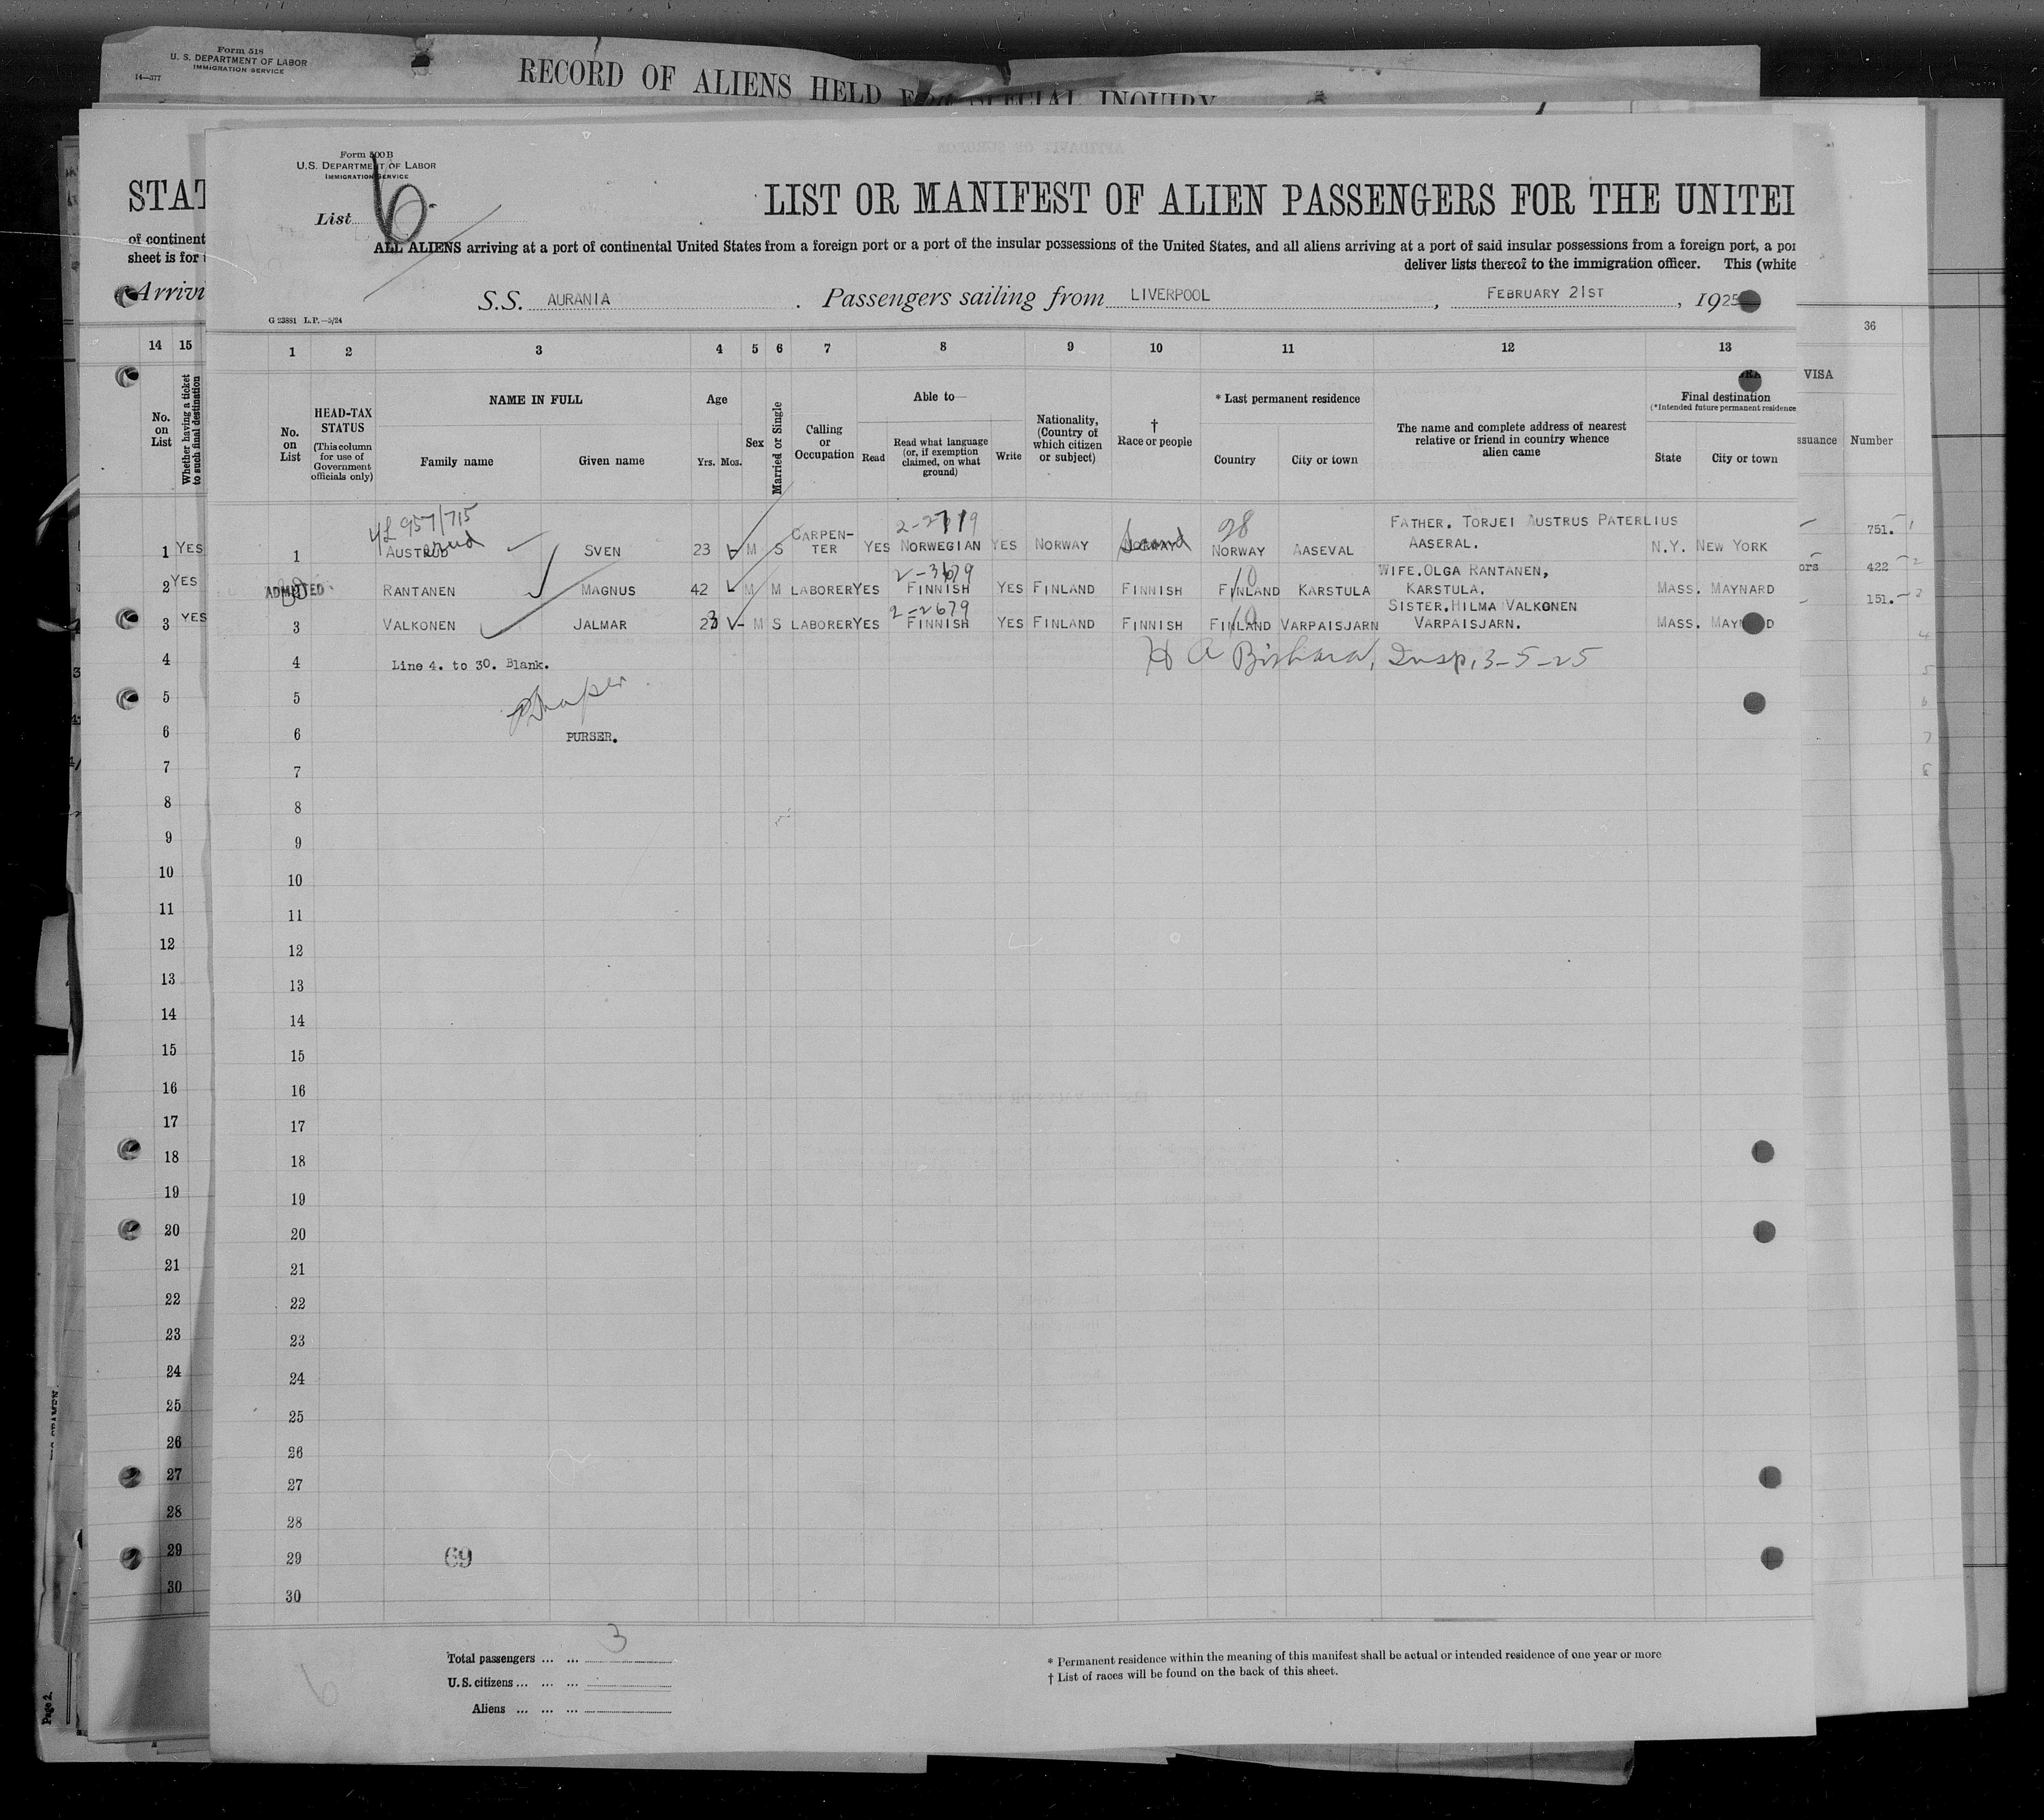 Form 518
U. S. DEPARTMENT OF LABOR
IMMIGRATION SERVICE
14—377
RECORD OF ALIENS HELD FOR SPECIAL INQUIRY
STAT
of continent
sheet is for
Arrivi
14 15
No. on List
Whether having a ticket to such final destination
1 YES
2 YES
3 YES
4
5
6
7
8
9
10
11
12
13
14
15
16
17
18
19
20
21
22
23
24
25
26
27
28
29
30
Page 2.
Form 500 B
U.S. DEPARTMENT OF LABOR
IMMIGRATION SERVICE
List 6
LIST OR MANIFEST OF ALIEN PASSENGERS FOR THE UNITE
ALL ALIENS arriving at a port of continental United States from a foreign port or a port of the insular possessions of the United States, and all aliens arriving at a port of said insular possessions from a foreign port, a por
deliver lists thereof to the immigration officer. This (white
S.S. AURANIA. Passengers sailing from LIVERPOOL, FEBRUARY 21ST, 1925
G 23881 L.P.—5/24
1 2 3 4 5 6 7 8 9 10 11 12 13
No. on List
HEAD-TAX STATUS
(This column for use of Government officials only)
NAME IN FULL
Family name
Given name
Age
Yrs. Mos.
Sex
Married or Single
Calling or Occupation
Able to—
Read
Read what language (or, if exemption claimed, on what ground)
Write
Nationality, (Country of which citizen or subject)
† Race or people
* Last permanent residence
Country
City or town
The name and complete address of nearest relative or friend in country whence alien came
Final destination
(*Intended future permanent residence
State
City or town
4L 957/715
2-2719
28
1 AUSTRUD SVEN 23 M S CARPENTER YES NORWEGIAN YES NORWAY NORWAY Scand NORWAY AASEVAL FATHER. TORJEI AUSTRUS PATERLIUS AASERAL. N.Y. NEW YORK
2-3679
10
ADMITTED RANTANEN MAGNUS 42 M M LABORER YES FINNISH YES FINLAND FINNISH FINLAND KARSTULA WIFE.OLGA RANTANEN, KARSTULA. MASS. MAYNARD
2-2679
10
3 VALKONEN JALMAR 23 M S LABORER YES FINNISH YES FINLAND FINNISH FINLAND VARPAISJARN SISTER.HILMA VALKONEN VARPAISJARN. MASS. MAYNARD
4 Line 4. to 30. Blank.
H A Insp. 3-5-25
5
6 PURSER.
7
8
9
10
11
12
13
14
15
16
17
18
19
20
21
22
23
24
25
26
27
28
29 69
30
Total passengers ... ... 3
U.S. citizens ... ... ...
Aliens ... ... ...
* Permanent residence within the meaning of this manifest shall be actual or intended residence of one year or more
† List of races will be found on the back of this sheet.
6
36
VISA
ssuance
Number
751. 1
ors 422 — 2
151. — 3
4
5
6
7
8